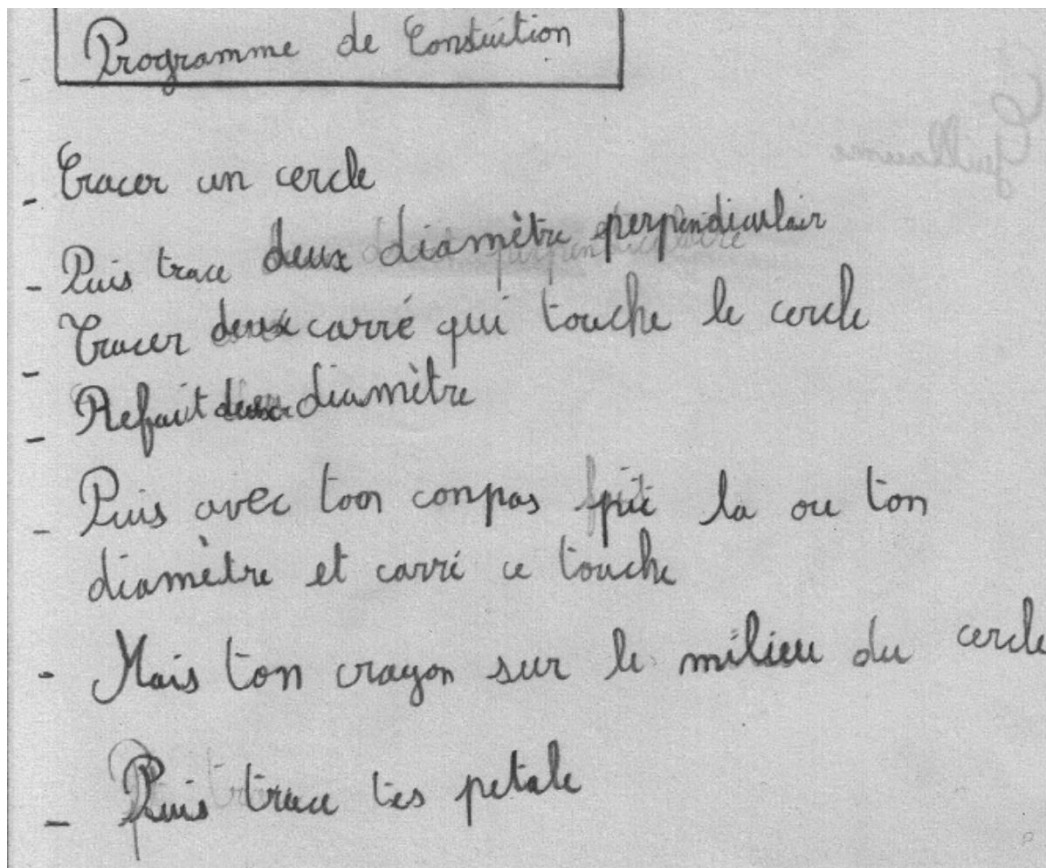 Programme de Constuition
Guillaume
- Tracer un cercle
- Puis trace deux diamètre perpendiculair
- Tracer deux carré qui touche le cercle
- Refait deux diamètre
- Puis avec ton compas la ou ton
diamètre et carré ce touche
- Mais ton crayon sur le milieu du cercle
- Puis trace tes petale